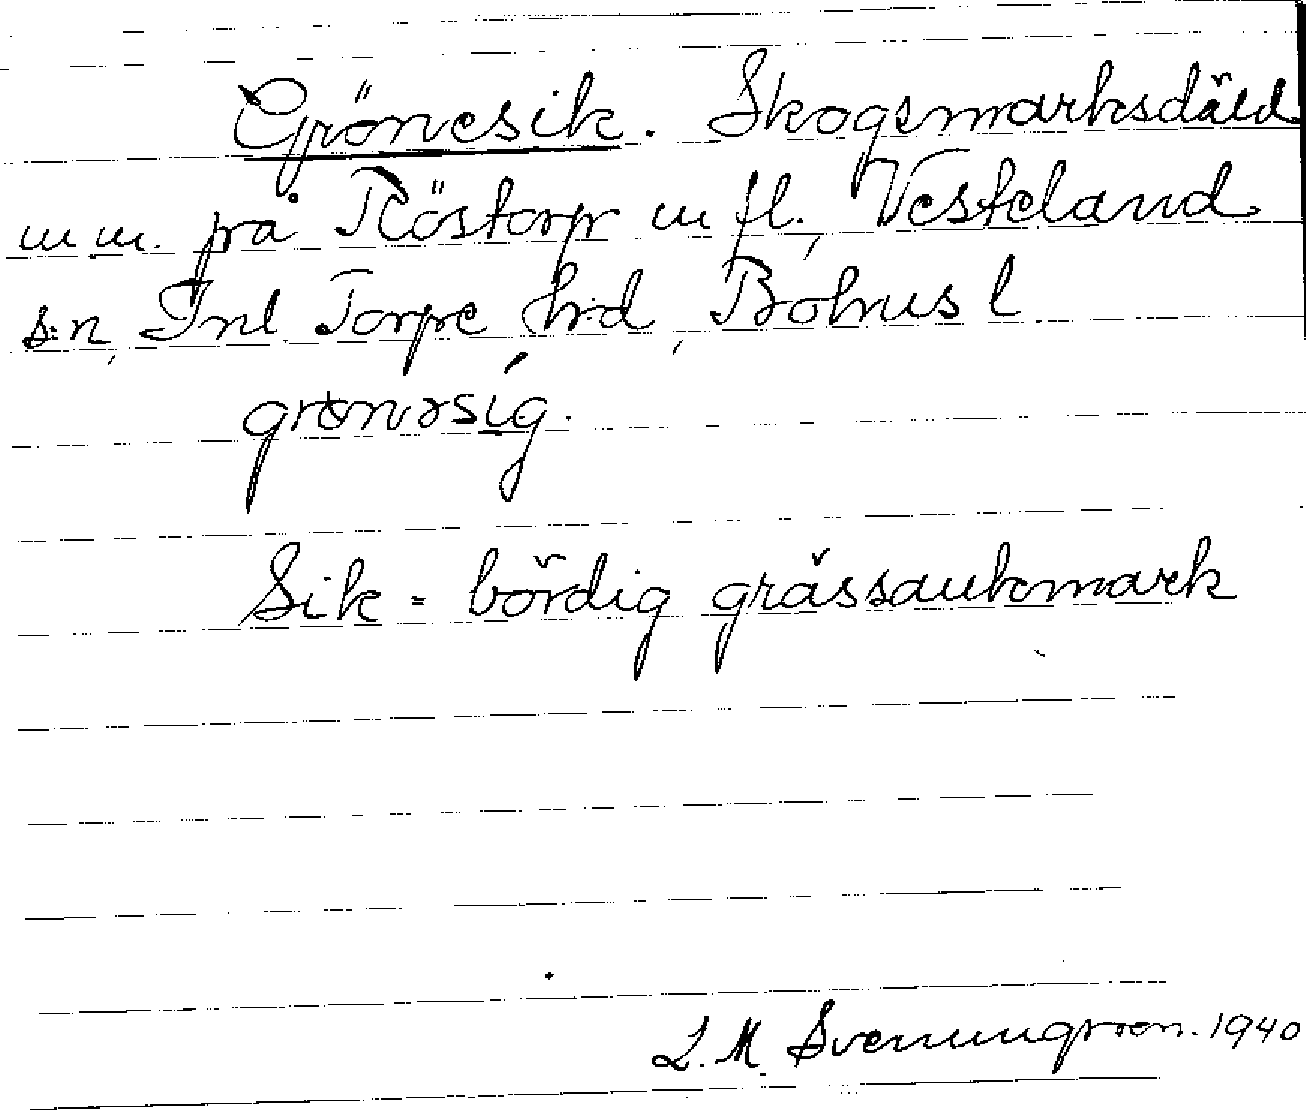 Grönesik. Skogsmarksdäld
m m. på Röstorp m fl., Vesteland
s:n, Inl Torpe hrd, Bohusl
grønəsi̲g.
Sik = bördig grässankmark
L. M. Svenungsson. 1940